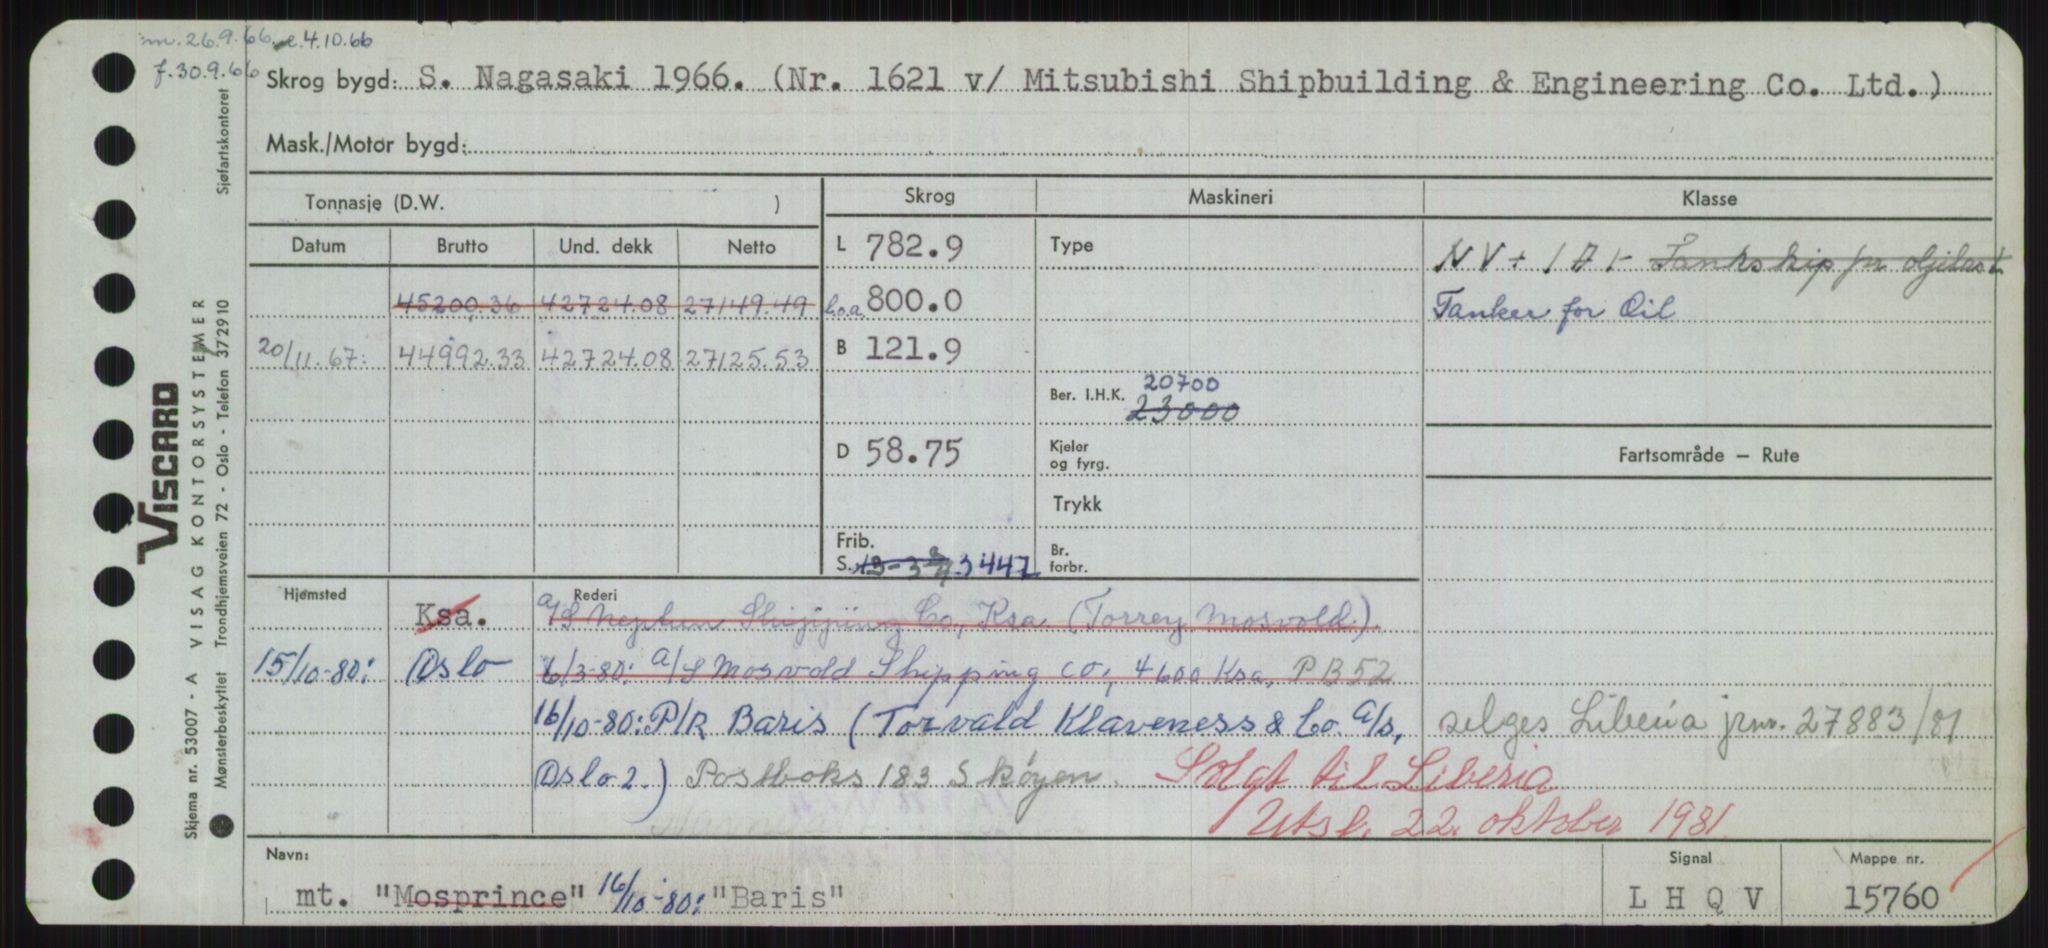 m. 26.9.66 e.4.10.66
f. 30.9.66
Skrog bygd: S. Nagasaki 1966. (Nr. 1621 v/ Mitsubishi Shipbuilding & Engineering Co. Ltd.)
Mask./Motor bygd:
Tonnasje (D.W. )
Skrog
Maskineri
Klasse
Datum Brutto Und. dekk Netto
L 782.9
Type
NV + 1A1- Tankskip for oljelast
45200.36 42724.08 27149.49
l.o.a. 800.0
Tanker for Oil
20/11.67: 44992.33 42724.08 27125.53
B 121.9
20700
Ber. I.H.K. 23000
D 58.75
Kjeler
og fyrg.
Fartsområde — Rute
Trykk
Frib.
S. 3447
Br.
forbr.
Hjemsted
Rederi
Ksa.
a/S Neptun Shipping Co., Ksa (Torrey Mosvold)
15/10-80: Oslo
6/3-80: a/S Mosvold Shipping co., 4600 Ksa, PB 52
16/10-80: P/R Baris (Torvald Klaveness & Co. a/s,
selges Liberia jrnr. 27883/81
Oslo 2.) Postboks 183 Skøyen.
Solgt til Liberia
Utsl. 22. oktober 1981
Navn:
mt. "Mosprince" 16/10-80: "Baris"
Signal
L H Q V
Mappe nr.
15760
VISCARD
VISAG KONTORSYSTEMER
Skjema nr. 53007 - A
Mønsterbeskyttet Trondhjemsveien 72 - Oslo - Telefon 372910
Sjøfartskontoret